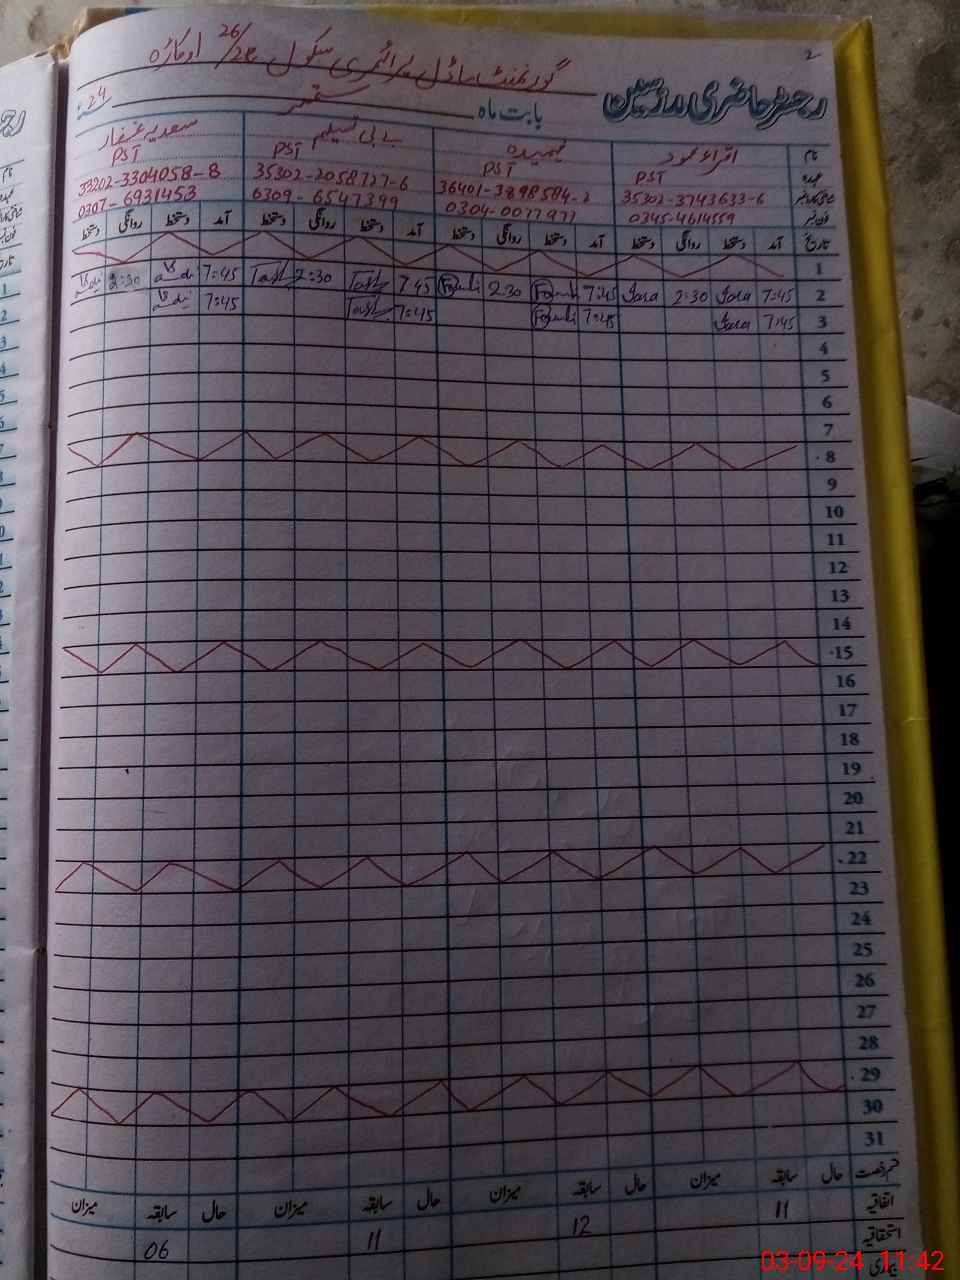 2
گورنمنٹ ماڈل پرائمری سکول 26/2R اوکاڑہ
رجسٹر حاضری مدرسین
بابت ماہ ستمبر 24ء
نام اقراء محمود فہمیدہ بے بی تسلیم سعدیہ غفار
عہدہ PST PST PST PST
شناختی کارڈ نمبر 35302-3743633-6 36401-3898584-2 35302-2058727-6 33202-3304058-8
فون نمبر 0345-4614559 0304-0077971 6309-6547399 0307-6931453
تاریخ آمد دستخط روانگی دستخط آمد دستخط روانگی دستخط آمد دستخط روانگی دستخط آمد دستخط روانگی دستخط
1
2 7:45 2:30 7:45 2:30 7 45 2:30 7:45 2:30
3 7:45 7:45 7:45 7:45
4
5
6
7
8
9
10
11
12
13
14
15
16
17
18
19
20
21
22
23
24
25
26
27
28
29
30
31
قسم رخصت حال سابقہ میزان حال سابقہ میزان حال سابقہ میزان حال سابقہ میزان
اتفاقیہ 11 12 11 06
استحقاقیہ
بیماری
03-09-24 11:42